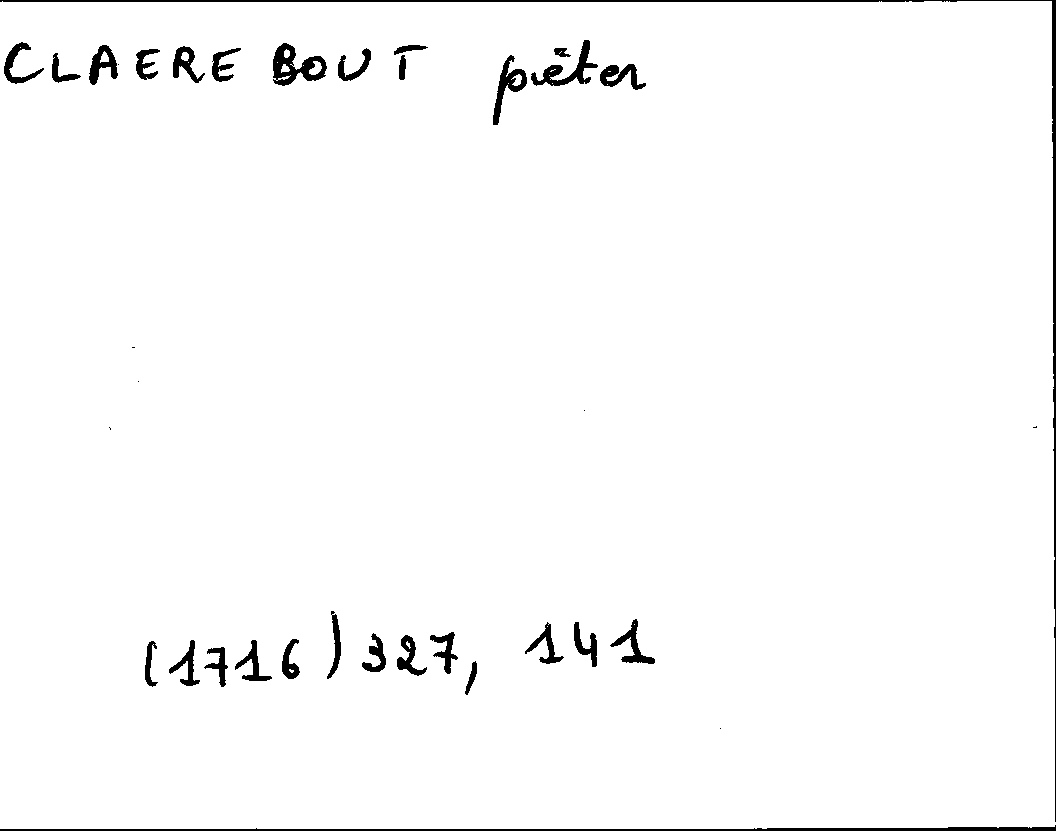 CLAEREBOUT pieter
(1716) 327, 141